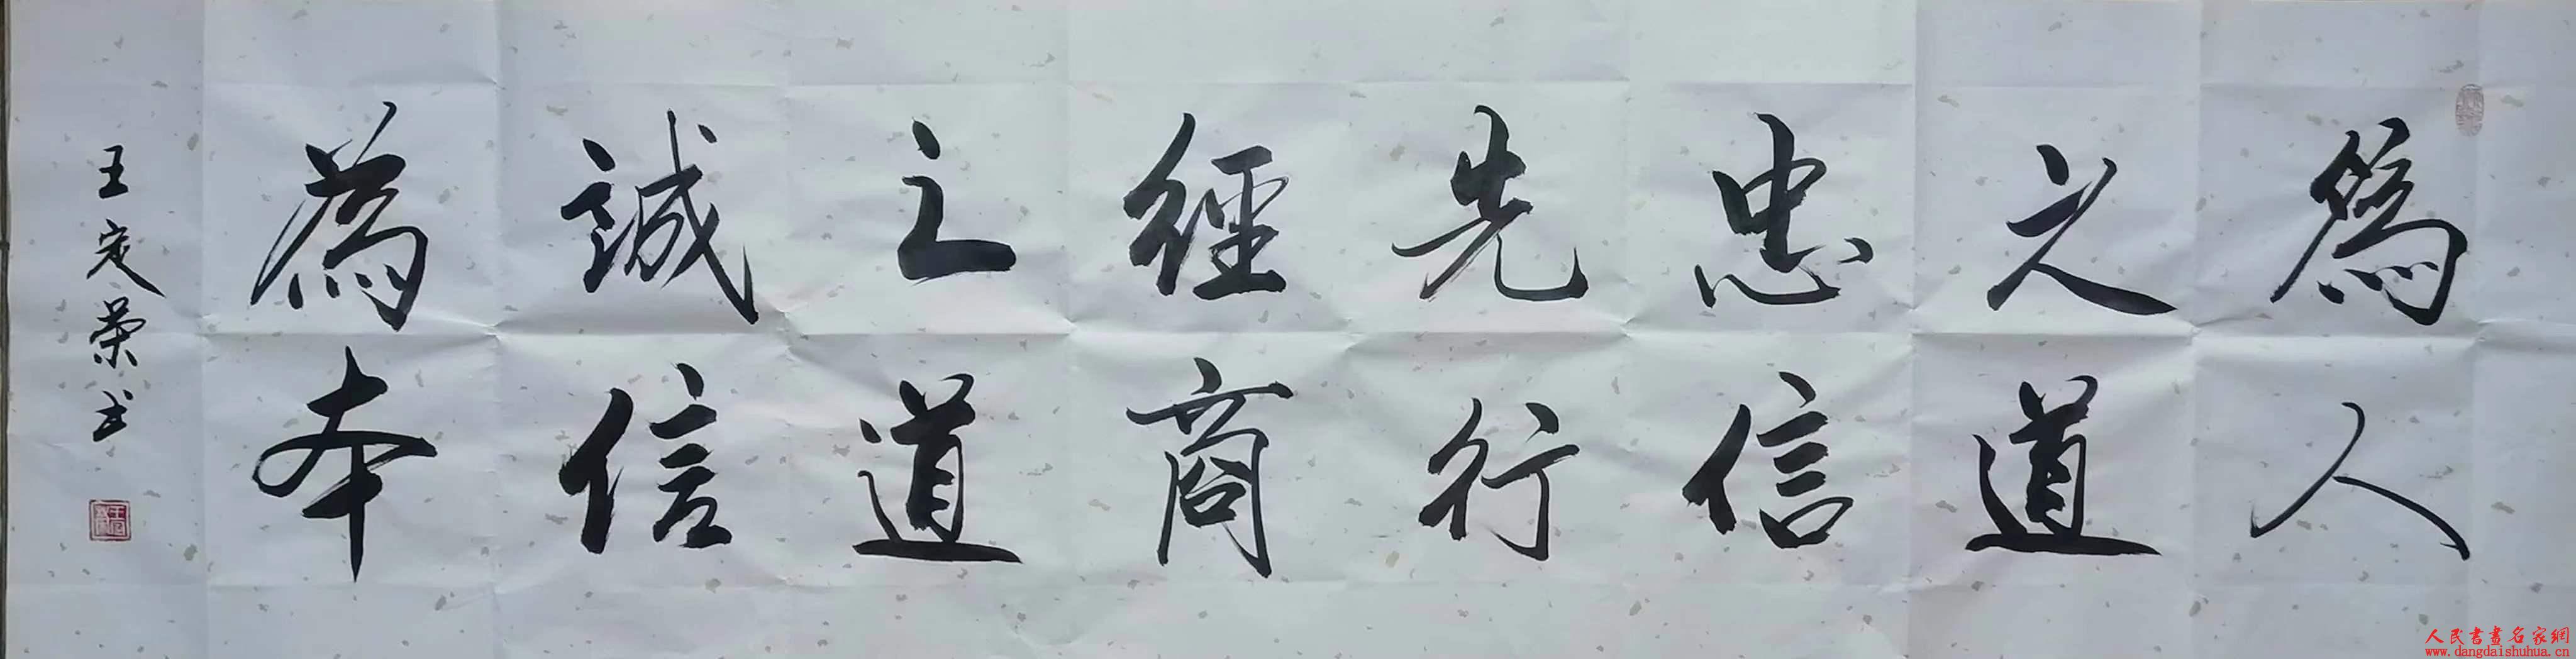 為人
之道
忠信
先行
經商
之道
誠信
為本
王定榮书
人民書畫名家網
www.dangdaishuhua.cn